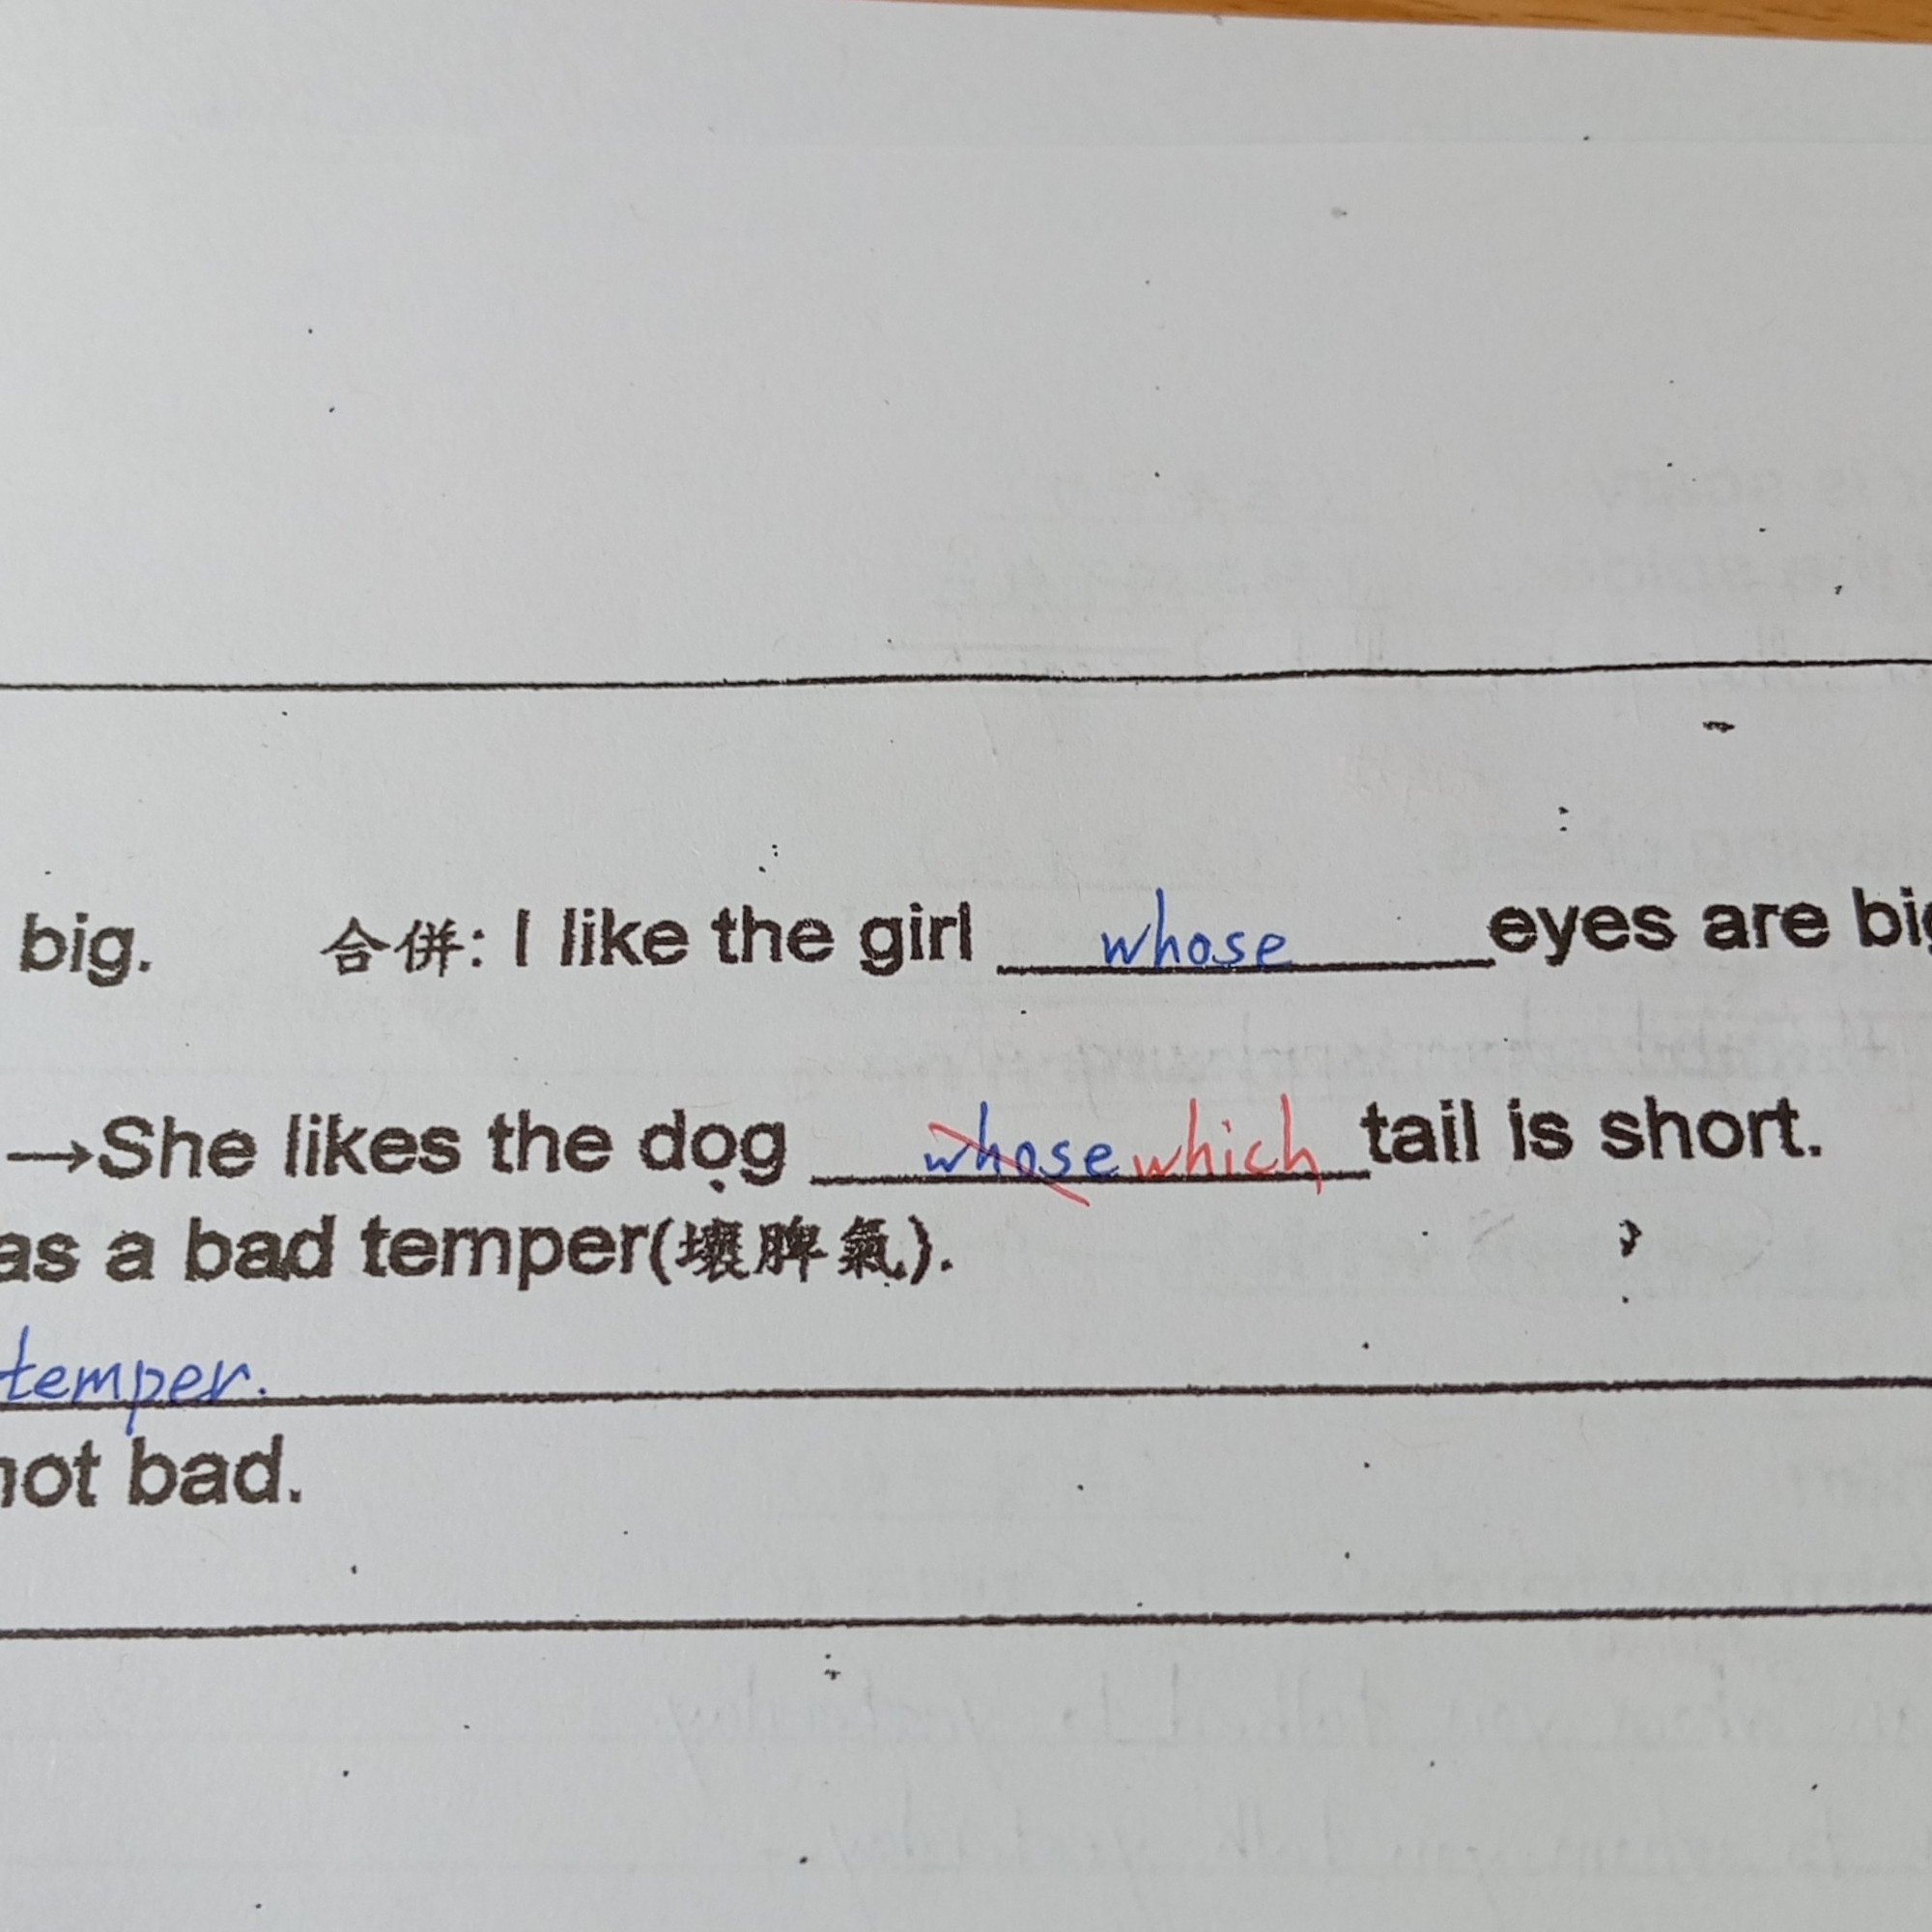 big. 合併: I like the girl whose eyes are big
→She likes the dog whose which tail is short.
as a bad temper(壞脾氣).
temper.
not bad.